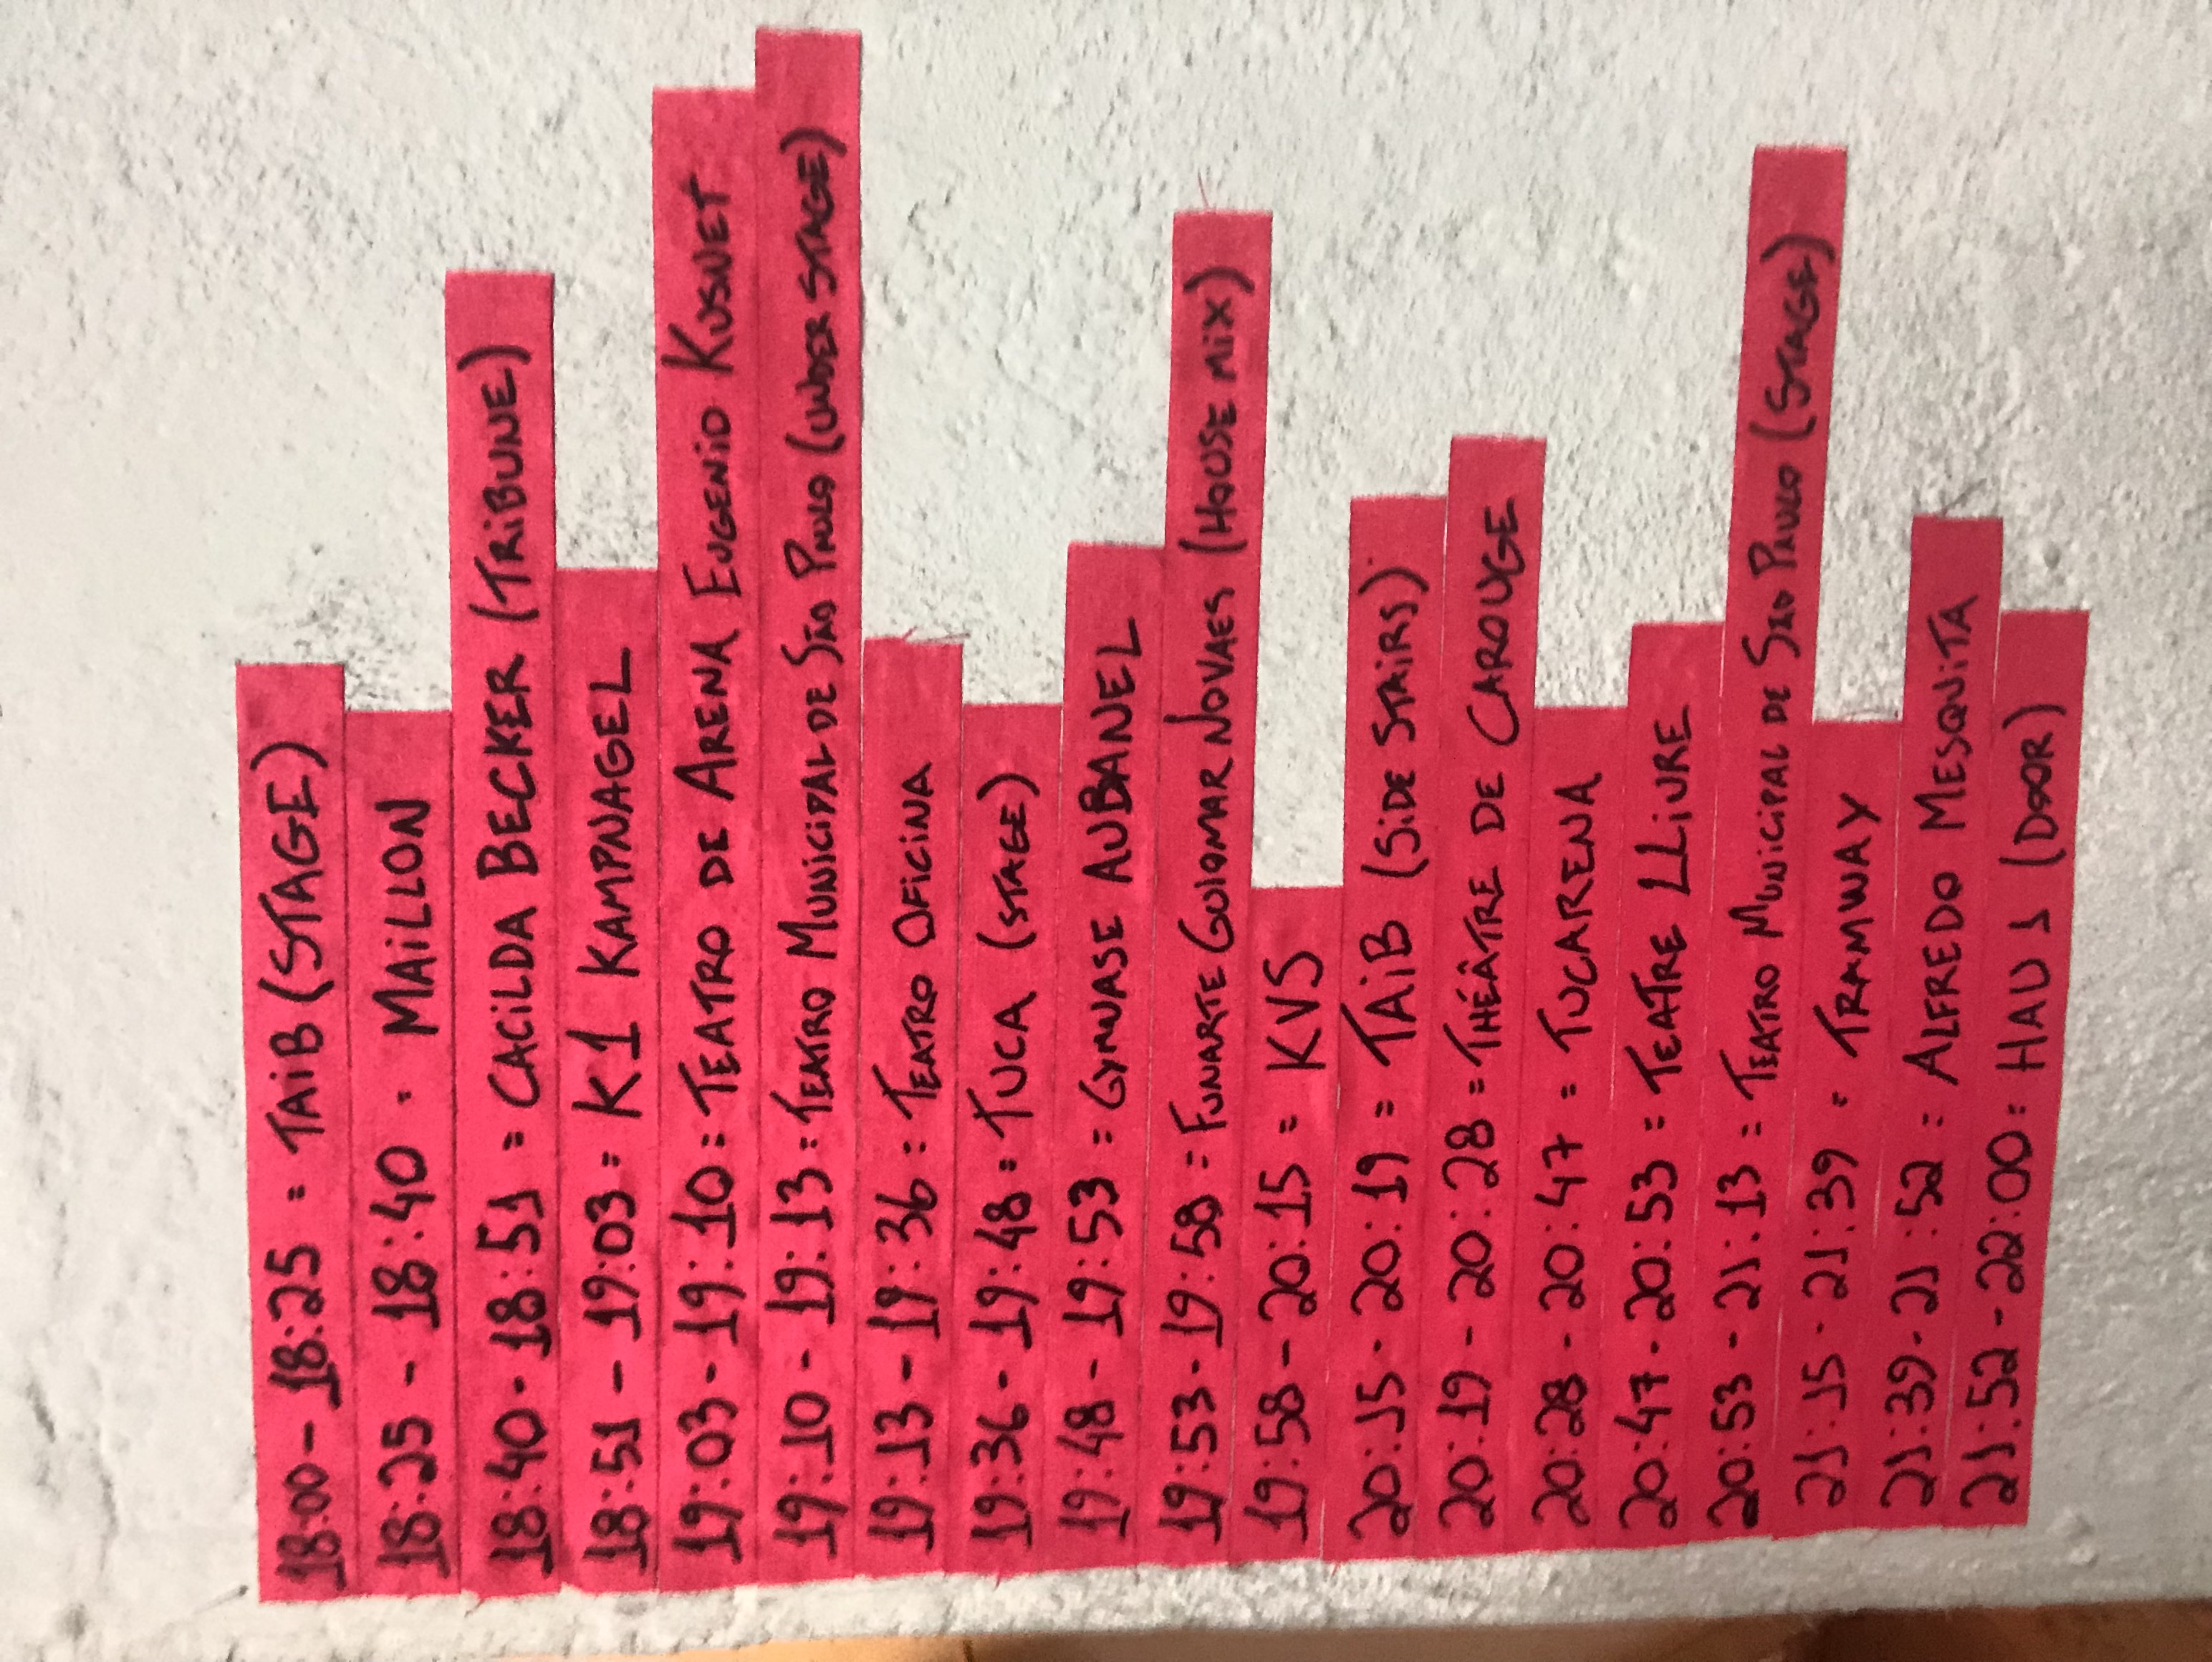 18:00 - 18:25 = TAIB (STAGE)
18:25 - 18:40 . MAILLON
18:40 - 18:51 = CACILDA BECKER (TRIBUNE)
18:51 - 19:03 = K1 KAMPNAGEL
19:03 - 19:10 = TEATRO DE ARENA EUGENIO KUSNET
19:10 - 19:13 = TEATRO MUNICIPAL DE SÃO PAULO (UNDER STAGE)
19:13 - 19:36 = TEATRO OFICINA
19:36 - 19:48 = TUCA (STAGE)
19:48 - 19:53 = GYMNASE AUBANEL
19:53 - 19:58 = FUNARTE GUIOMAR NOVAES (HOUSE MIX)
19:58 - 20:15 = KVS
20:15 - 20:19 = TAIB (SIDE STAIRS)
20:19 - 20:28 = THÉÂTRE DE CAROUGE
20:28 - 20:47 = TUCARENA
20:47 - 20:53 = TEATRE LLIURE
20:53 - 21:13 = TEATRO MUNICIPAL DE SÃO PAULO (STAGE)
21:15 - 21:39 = TRAMWAY
21:39 - 21:52 = ALFREDO MESQUITA
21:52 - 22:00 = HAU 1 (DOOR)